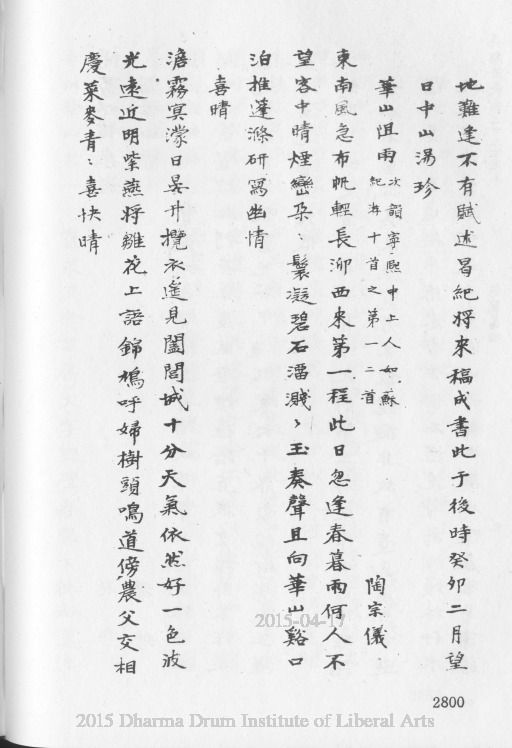 地難逢不有賦述曷紀將來稿成書此于後時癸卯二月望
日中山湯珍
華山阻雨次韻寧熙中上人如蘇
紀海十首之第一二首
陶宗儀
東南風急布帆輕長泖西來第一程此日忽逢春暮雨何人不
望客中晴煙巒朶〻鬟凝碧石溜濺〻玉奏聲且向華山谿口
泊推蓬滌研寫幽情
喜晴
澹霧冥濛日晃升攬衣遙見闔閭城十分天氣依然好一色波
光遠近明紫燕將雛花上語錦鳩呼婦樹頭鳴道傍農父交相
慶菜麥青〻喜快晴
2800
2015-04-17
2015 Dharma Drum Institute of Liberal Arts